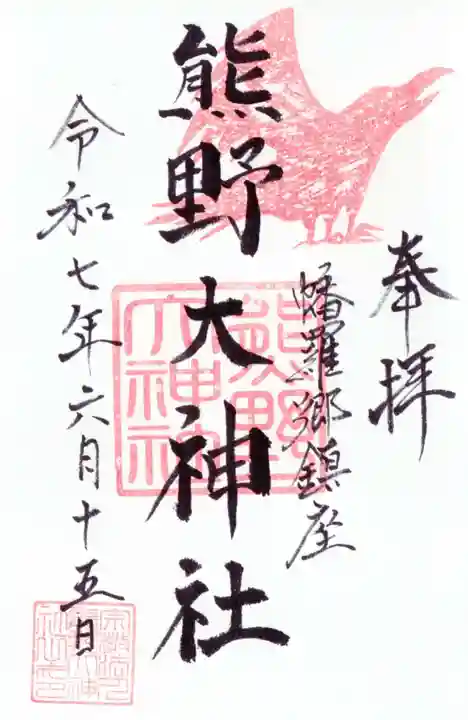 奉拝
幡羅郷鎮座
熊野大神社
熊野
大神社
令和七年六月十五日